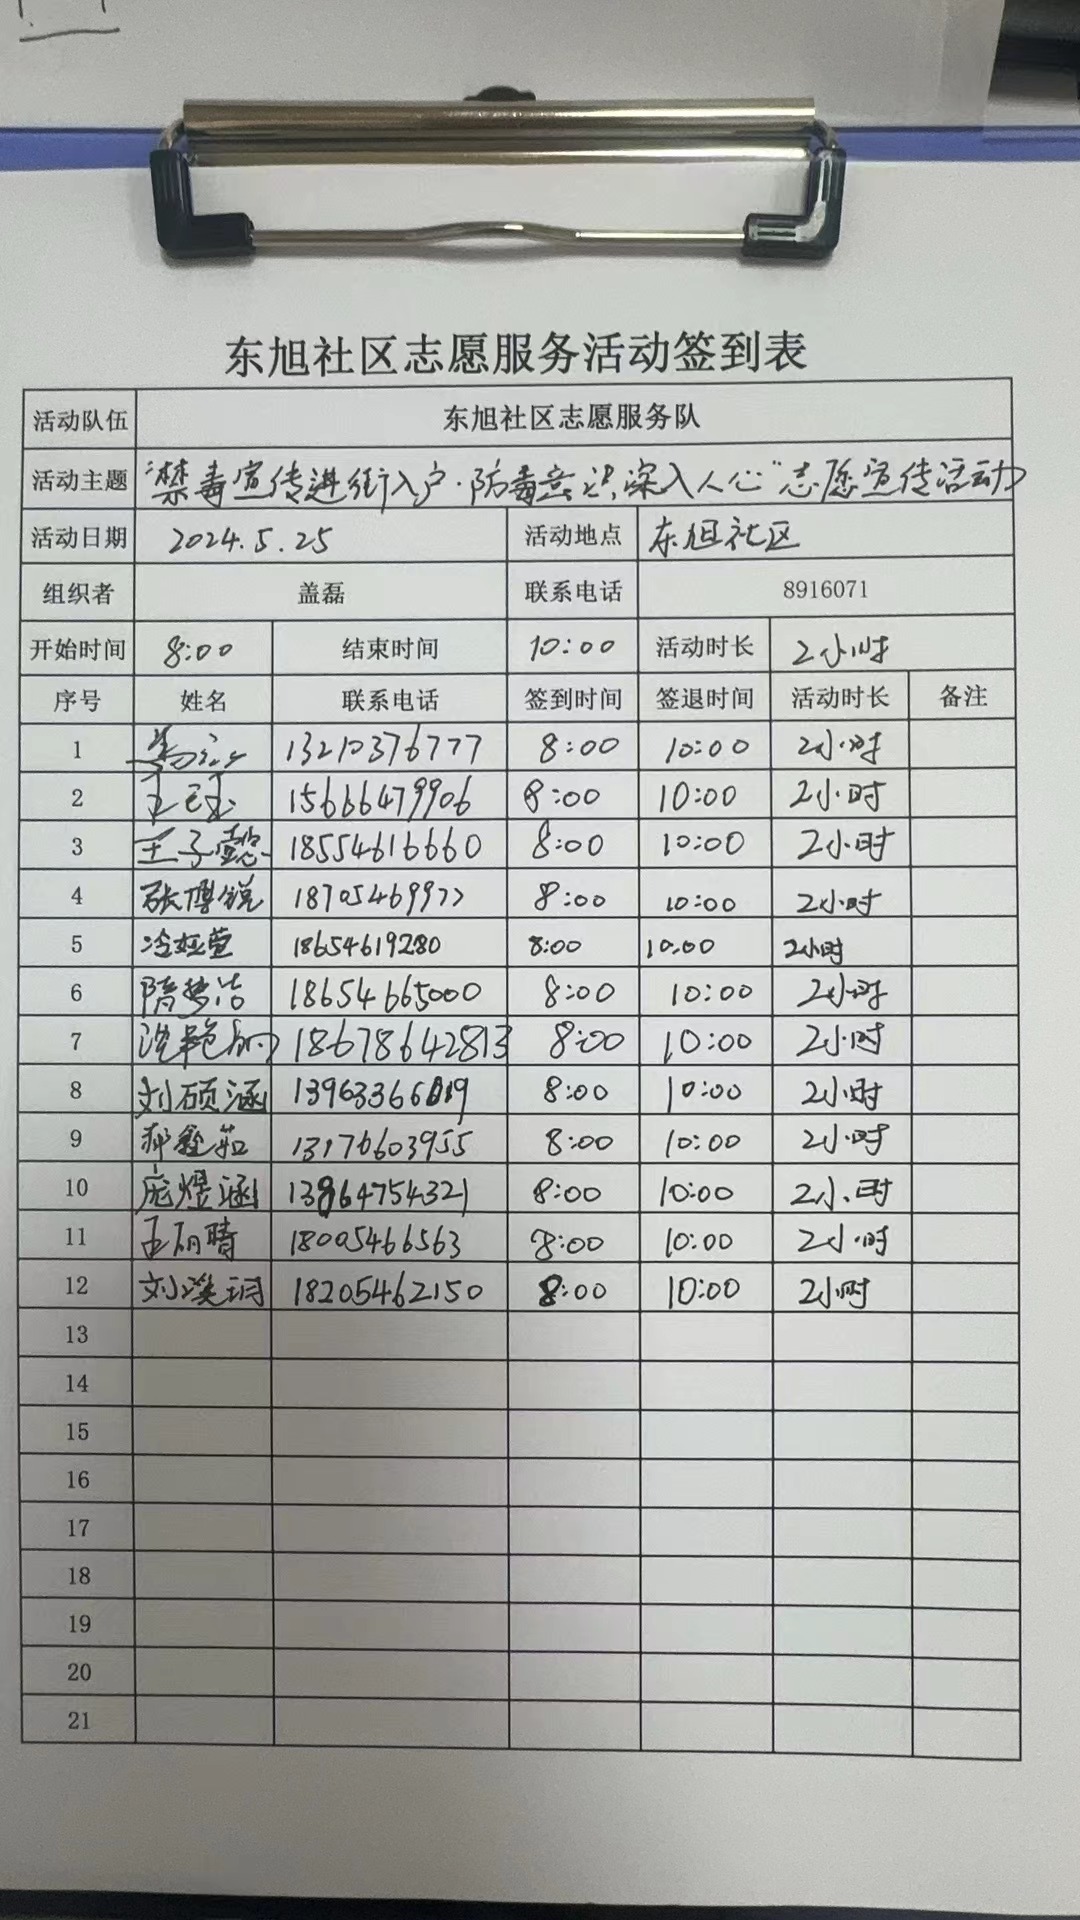 东旭社区志愿服务活动签到表
活动队伍 东旭社区志愿服务队
活动主题 "禁毒宣传进街入户·防毒意识深入人心"志愿宣传活动
活动日期 2024.5.25 活动地点 东旭社区
组织者 盖磊 联系电话 8916071
开始时间 8:00 结束时间 10:00 活动时长 2小时
序号 姓名 联系电话 签到时间 签退时间 活动时长 备注
1 13210376777 8:00 10:00 2小时
2 15666479906 8:00 10:00 2小时
3 王子懿 18554616660 8:00 10:00 2小时
4 张博锐 18705469977 8:00 10:00 2小时
5 冷娅萱 18654619280 8:00 10:00 2小时
6 隋梦洁 18654665000 8:00 10:00 2小时
7 18678642813 8:00 10:00 2小时
8 刘硕涵 8:00 10:00 2小时
9 13176603955 8:00 10:00 2小时
10 庞煜涵 13864754321 8:00 10:00 2小时
11 18005466563 8:00 10:00 2小时
12 刘溪玥 18205462150 8:00 10:00 2小时
13
14
15
16
17
18
19
20
21